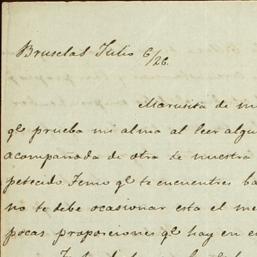 Bruselas Julio 6/26.
Marusiña de m
qᵉ prueba mi alma al leer algu
acompañada de otra de nuestra
petecido Temo qᵉ te encuentres ba
no te debe ocasionar esta el me
pocas proposiciones qᵉ hay en e